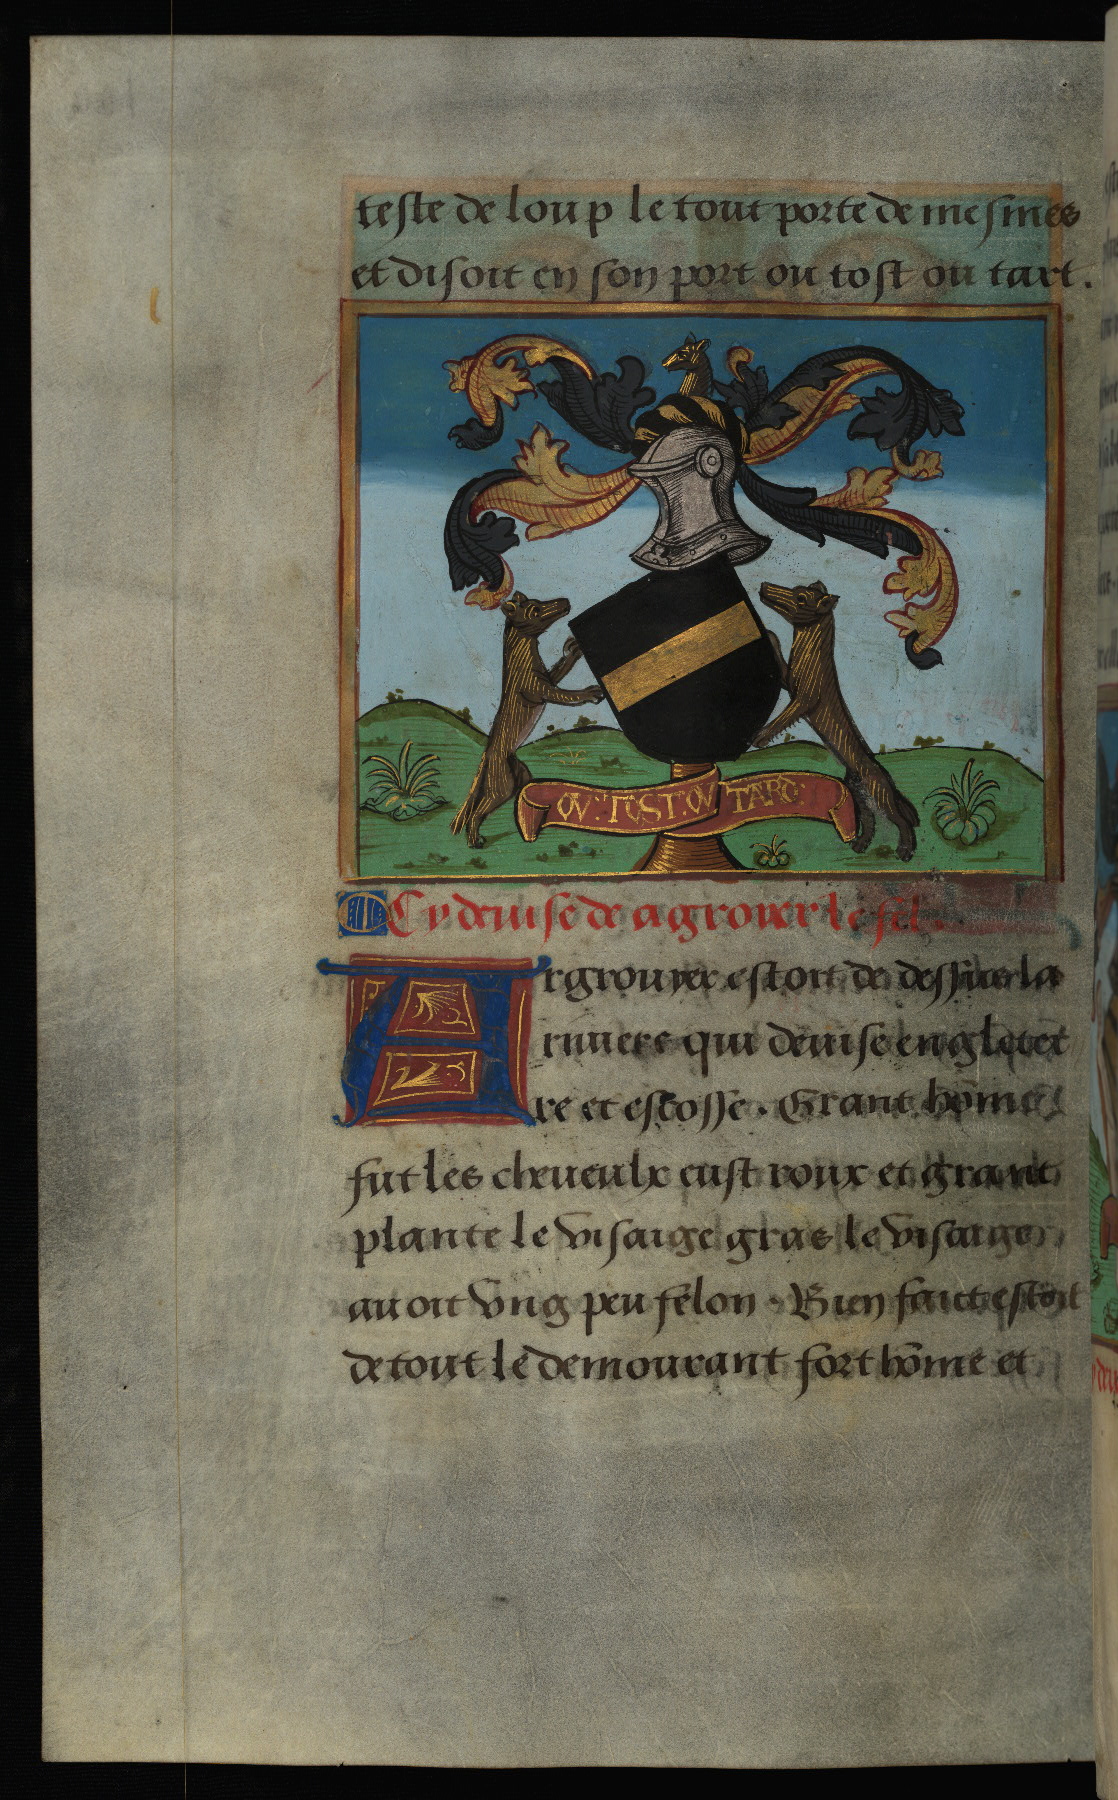 teste de loup le tout porte de mesmes
et disoit en son port ou tost ou tart.
OV: TOST: OV TARD:
Cy deuise de agrouer le fel
Argrouyer estoit de dessus la
riuiere qui deuise engleter
re et escosse. Grant hōme
fut les cheueulx eust roux et grant
plante le visaige gras le visaige
auoit vng peu felon. Bien faict estoit
de tout le demourant fort hōme et